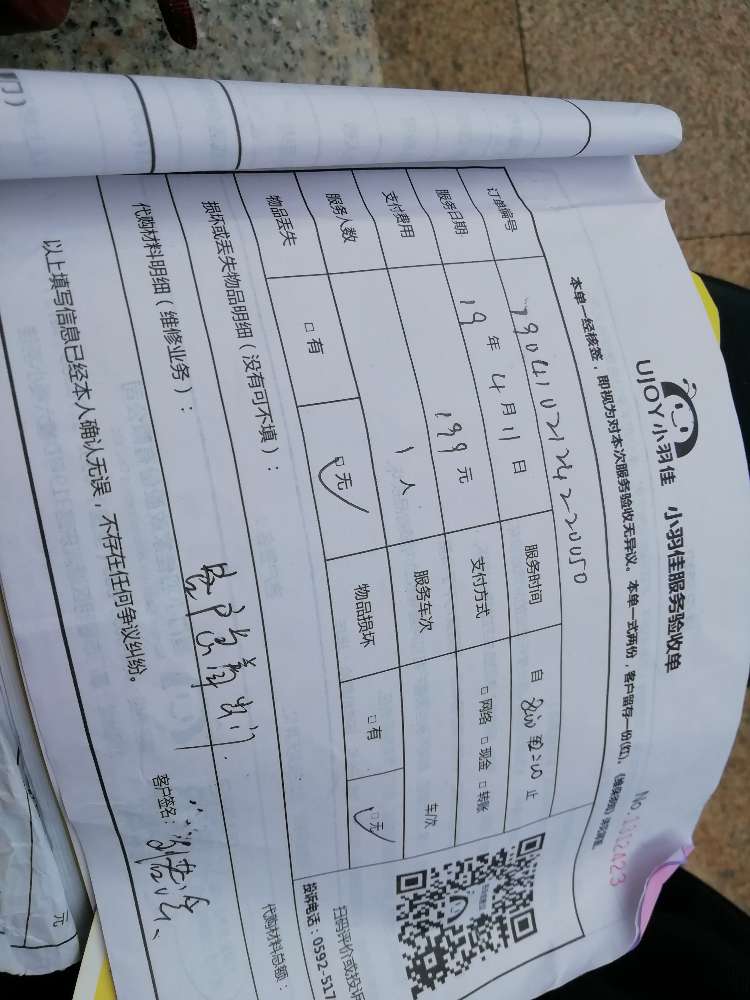 UJOY小羽佳 小羽佳服务验收单
No.
本单一经核签，即视为对本次服务验收无异议。本单一式两份，客户留存一份(红)，
订单编号 服务时间 自 止
服务日期 19年4月11日 支付方式 □网络 □现金 □转账
支付费用 199元 服务车次 车次
服务人数 1人 物品损坏 □有 □无
物品丢失 □有 □无
损坏或丢失物品明细（没有可不填）：
代购材料明细（维修业务）：
代购材料总额：
以上填写信息已经本人确认无误，不存在任何争议纠纷。
客户签名：
扫码评价或投诉
投诉电话：0592-517
元
门）